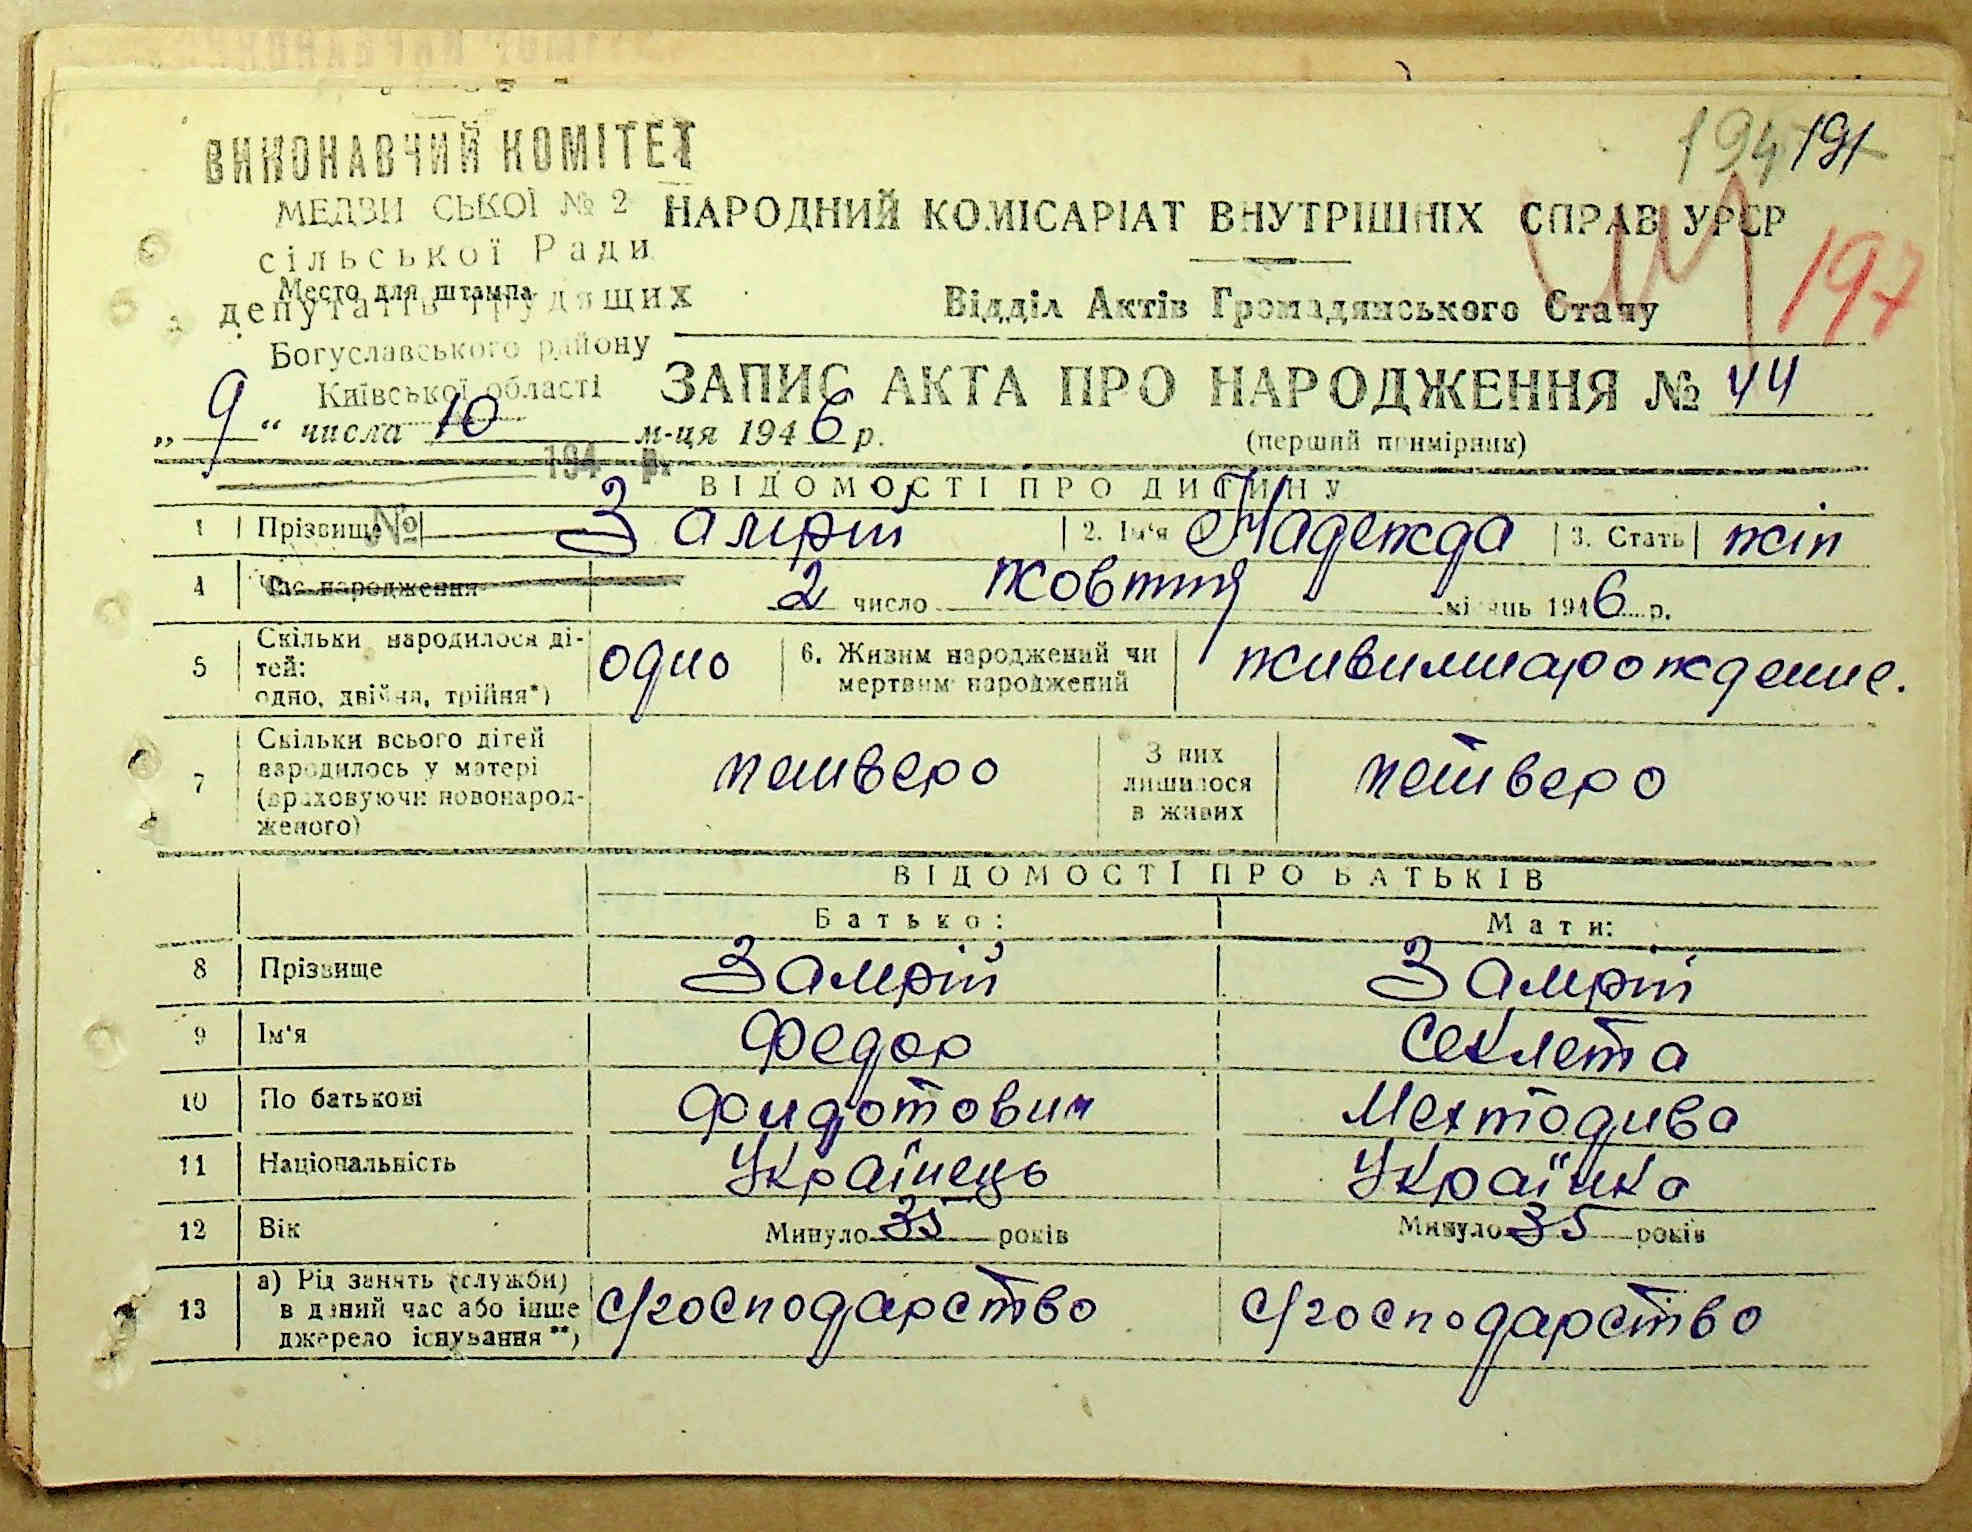 194 191
197
ВИКОНАВЧИЙ КОМІТЕТ
СЬКОЇ № 2
сільської Ради
Место для штампа
депутатів трудящих
Богуславського району
Київської області
194 р.
№
НАРОДНИЙ КОМІСАРІАТ ВНУТРІШНІХ СПРАВ УРСР
Відділ Актів Громадянського Стану
ЗАПИС АКТА ПРО НАРОДЖЕННЯ № 44
„ 9 “ числа 10 м-ця 1946 р.
(перший примірник)
ВІДОМОСТІ ПРО ДИТИНУ
1 Прізвище Замрій 2. Ім'я Надежда 3. Стать жін
4 Час народження 2 число жовтня місяць 1946 р.
5 Скільки народилося ді-
тей:
одно, двійня, трійня*) одно 6. Живим народжений чи
мертвим народжений живимнарождение.
7 Скільки всього дітей
народилось у матері
(враховуючи новонарод-
женого) четверо З них
лишилося
в живих четверо
ВІДОМОСТІ ПРО БАТЬКІВ
Батько: Мати:
8 Прізвище Замрій Замрій
9 Ім'я Федор Секлета
10 По батькові Фидотович Мехтодива
11 Національність Українець Українка
12 Вік Минуло 35 років Минуло 35 років
13 а) Рід занять (служби)
в даний час або інше
джерело існування**) С/господарство С/господарство